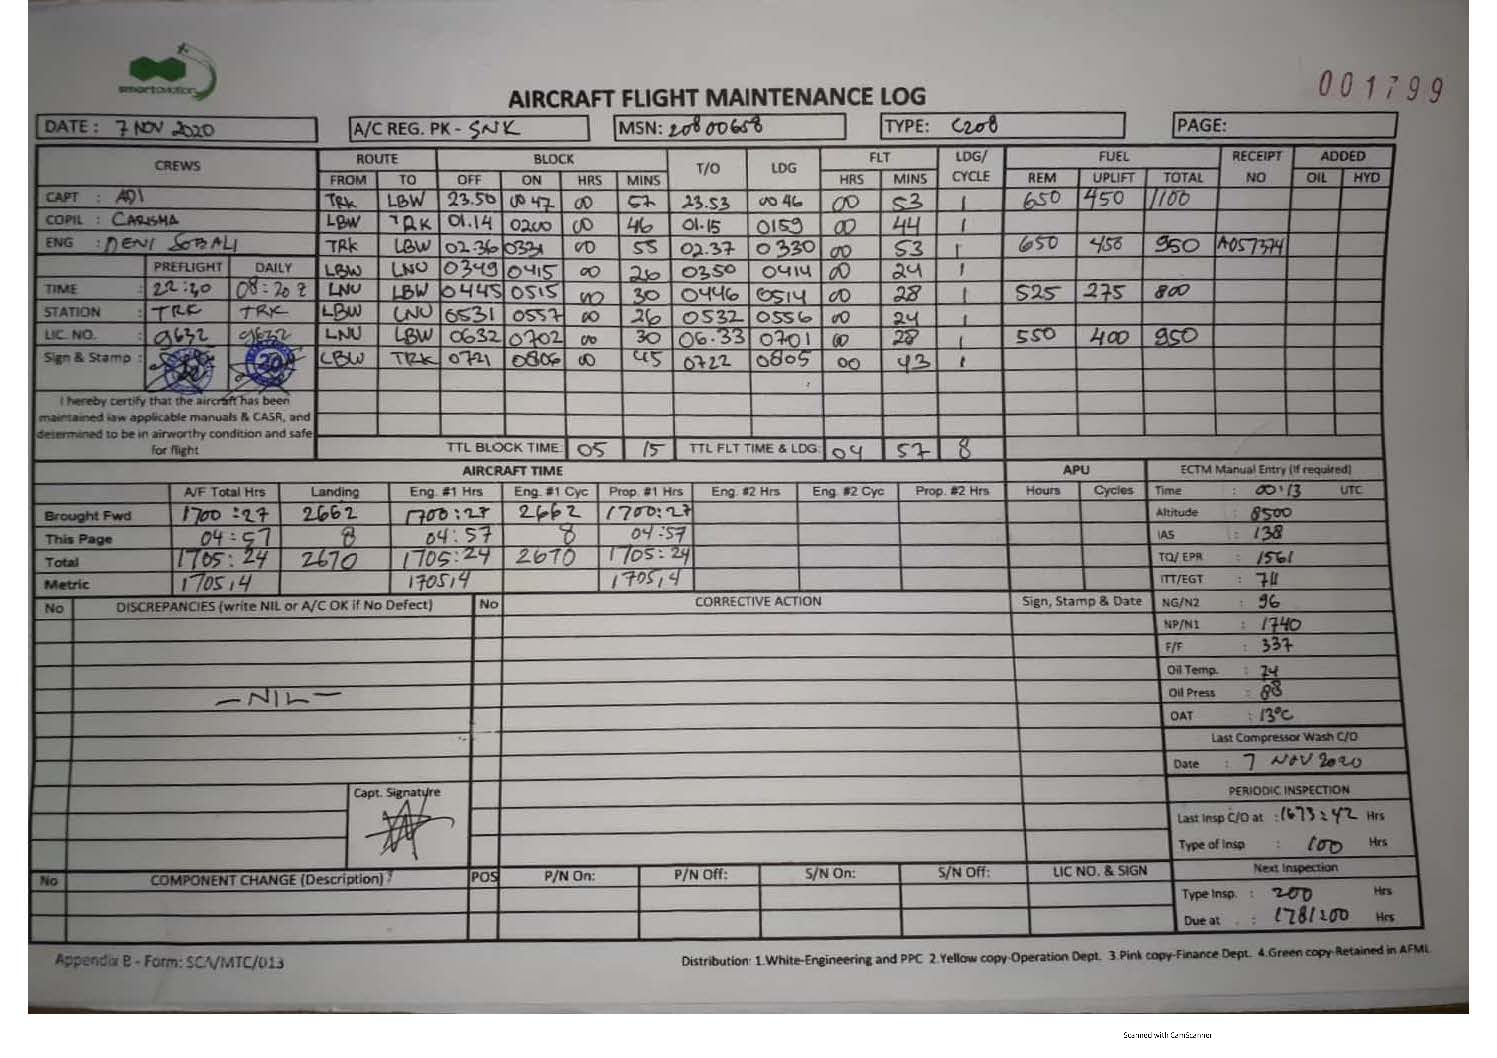 smartaviation
001799
AIRCRAFT FLIGHT MAINTENANCE LOG
DATE : 7 NOV 2020 A/C REG. PK - SNK MSN: 20800658 TYPE: C208 PAGE:
CREWS ROUTE BLOCK T/O LDG FLT LDG/ CYCLE FUEL RECEIPT NO ADDED
FROM TO OFF ON HRS MINS HRS MINS REM UPLIFT TOTAL OIL HYD
CAPT : ADI TRK LBW 23.50 0047 00 57 23.53 0046 00 53 1 650 450 1100
COPIL : CARISMA LBW TRK 01.14 0200 00 46 01.15 0159 00 44 1
ENG : DENI SOBALI TRK LBW 02.36 0331 00 55 02.37 0330 00 53 1 650 450 950 A057374
PREFLIGHT DAILY LBW LNU 0349 0415 00 26 0350 0414 00 24 1
TIME : 22:30 08:20 z LNU LBW 0445 0515 00 30 0446 0514 00 28 1 525 275 800
STATION : TRK TRK LBW LNU 0531 0557 00 26 0532 0556 00 24 1
LIC. NO. : 9632 9632 LNU LBW 0632 0702 00 30 06.33 0701 00 28 1 550 400 950
Sign & Stamp : LBW TRK 0721 0806 00 45 0722 0805 00 43 1
I hereby certify that the aircraft has been
maintained iaw applicable manuals & CASR, and
determined to be in airworthy condition and safe
for flight
TTL BLOCK TIME: 05 15 TTL FLT TIME & LDG: 04 57 8
AIRCRAFT TIME APU ECTM Manual Entry (If required)
A/F Total Hrs Landing Eng. #1 Hrs Eng. #1 Cyc Prop. #1 Hrs Eng. #2 Hrs Eng. #2 Cyc Prop. #2 Hrs Hours Cycles Time : 00:13 UTC
Brought Fwd 1700:27 2662 1700:27 2662 1700:27 Altitude : 8500
This Page 04:57 8 04:57 8 04:57 IAS : 138
Total 1705:24 2670 1705:24 2670 1705:24 TQ/ EPR : 1561
Metric 1705,4 1705,4 1705,4 ITT/EGT : 711
No DISCREPANCIES (write NIL or A/C OK if No Defect) No CORRECTIVE ACTION Sign, Stamp & Date NG/N2 : 96
NP/N1 : 1740
F/F : 337
Oil Temp. : 74
- NIL - Oil Press : 88
OAT : 13°C
Last Compressor Wash C/O
Date : 7 NOV 2020
Capt. Signature PERIODIC INSPECTION
Last Insp C/O at : 1673:42 Hrs
Type of Insp : 100 Hrs
No COMPONENT CHANGE (Description) POS P/N On: P/N Off: S/N On: S/N Off: LIC NO. & SIGN Next Inspection
Type Insp. : 200 Hrs
Due at : 1781:00 Hrs
Appendix B - Form: SCA/MTC/013 Distribution: 1.White-Engineering and PPC 2.Yellow copy-Operation Dept. 3.Pink copy-Finance Dept. 4.Green copy-Retained in AFML
Scanned with CamScanner